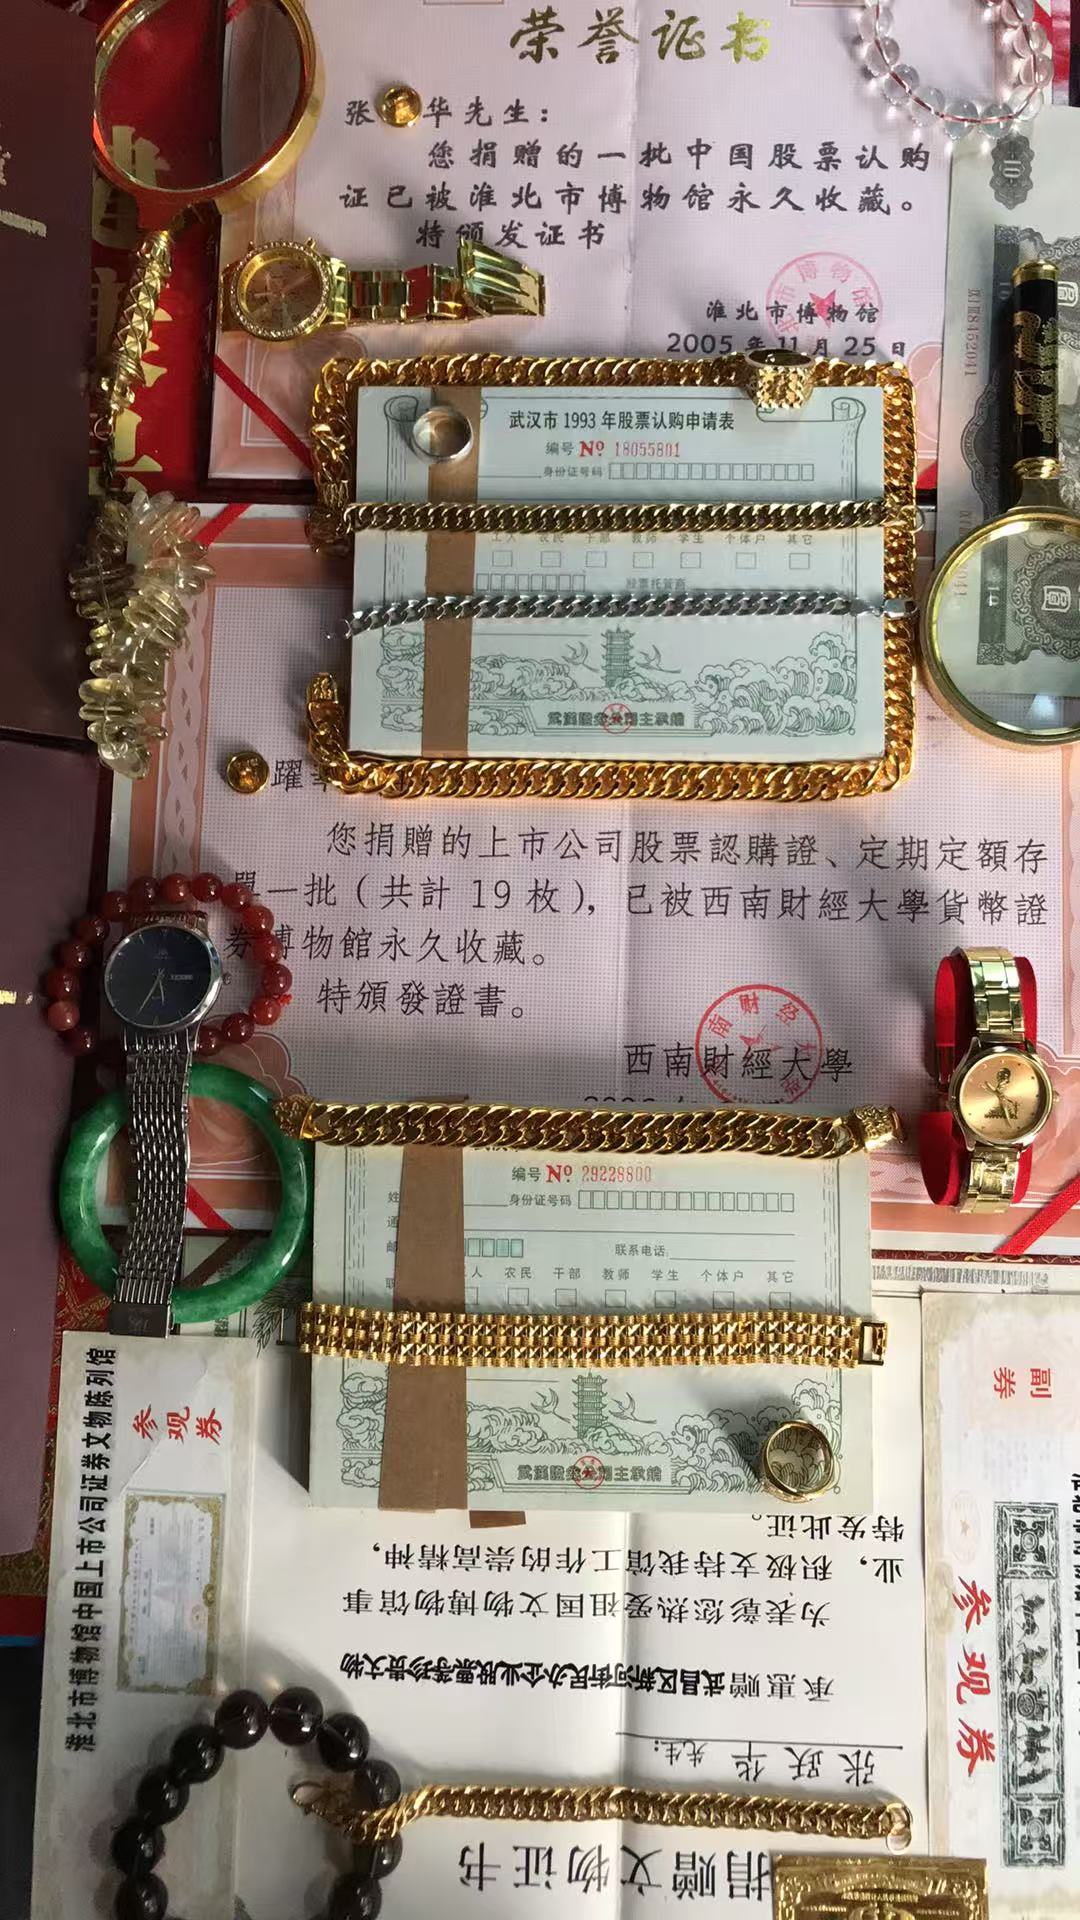 荣誉证书
张 华先生：
您捐赠的一批中国股票认购
证已被淮北市博物馆永久收藏。
特颁发证书
淮北市博物馆
2005年11月25日
武汉市1993年股票认购申请表
编号 № 18055801
身份证号码
工人 农民 干部 教师 学生 个体户 其它
股票托管商
躍
您捐贈的上市公司股票認購證、定期定額存
單一批（共計19枚），已被西南財經大學貨幣證
券博物館永久收藏。
特頒發證書。
西南財經大學
编号 № 29228800
身份证号码
联系电话
人 农民 干部 教师 学生 个体户 其它
淮北市博物馆中国上市公司证券文物陈列馆
参观券
副券
参观券
捐赠文物证书
张跃华 先生:
承惠赠武昌区新河街民办企业股票等珍贵文物
为表彰您热爱祖国文物博物馆事
业，积极支持我馆工作的崇高精神，
特发此证。
8452041
10
圆